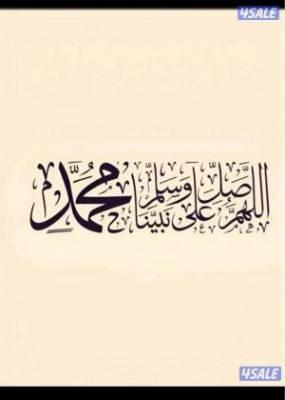 4SALE
اللهم صل وسلم على نبينا محمد
4SALE